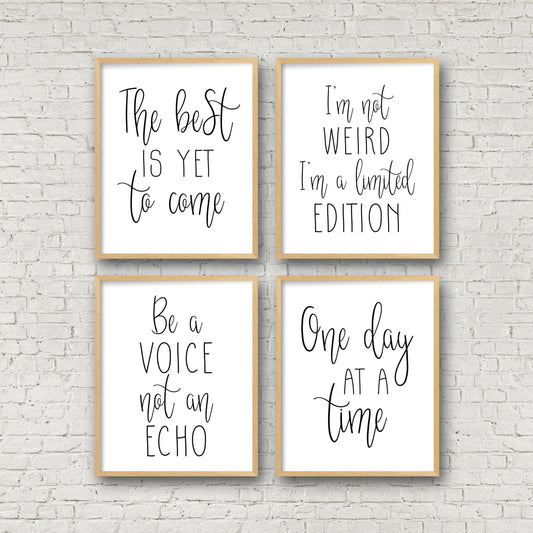 The best
IS YET
to come
I'm not
WEIRD
I'm a limited
EDITION
Be a
VOICE
not an
ECHO
One day
AT A
time